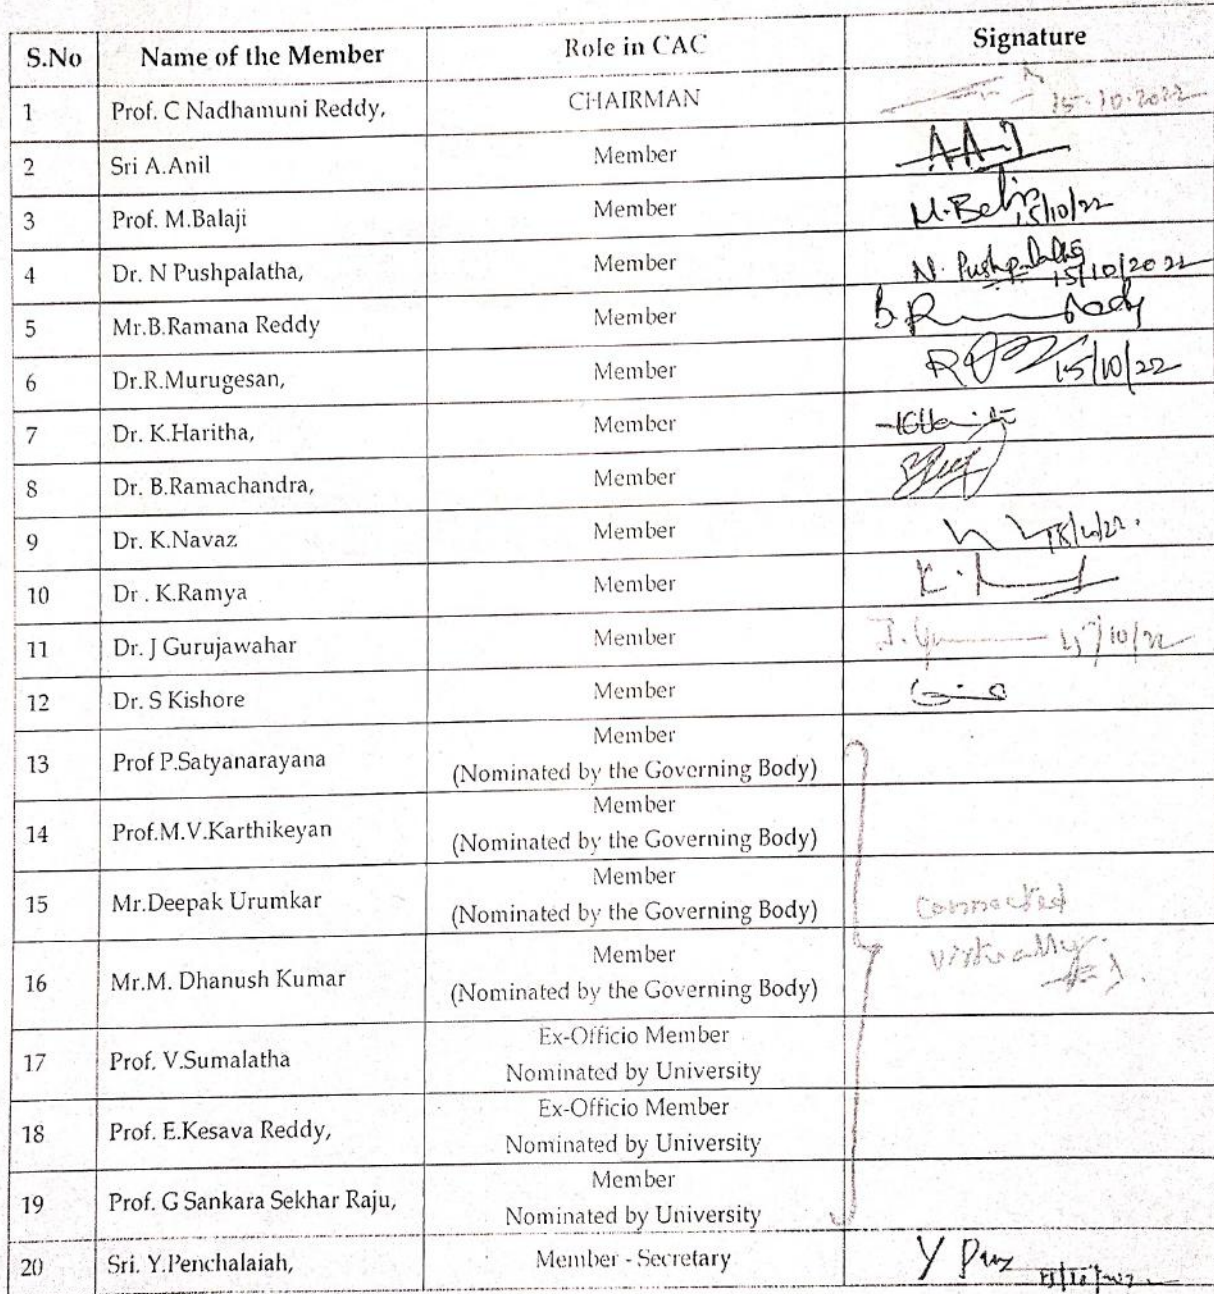 S.No Name of the Member Role in CAC Signature
1 Prof. C Nadhamuni Reddy, CHAIRMAN 15.10.2022
2 Sri A.Anil Member
3 Prof. M.Balaji Member M.Balaji 15/10/22
4 Dr. N Pushpalatha, Member N. Pushpalatha 15/10/2022
5 Mr.B.Ramana Reddy Member
6 Dr.R.Murugesan, Member 15/10/22
7 Dr. K.Haritha, Member
8 Dr. B.Ramachandra, Member
9 Dr. K.Navaz Member
10 Dr . K.Ramya Member
11 Dr. J Gurujawahar Member 15/10/22
12 Dr. S Kishore Member
13 Prof P.Satyanarayana Member
(Nominated by the Governing Body)
14 Prof.M.V.Karthikeyan Member
(Nominated by the Governing Body)
15 Mr.Deepak Urumkar Member
(Nominated by the Governing Body) Connected
16 Mr.M. Dhanush Kumar Member virtually
(Nominated by the Governing Body)
17 Prof. V.Sumalatha Ex-Officio Member
Nominated by University
18 Prof. E.Kesava Reddy, Ex-Officio Member
Nominated by University
19 Prof. G Sankara Sekhar Raju, Member
Nominated by University
20 Sri. Y.Penchalaiah, Member - Secretary